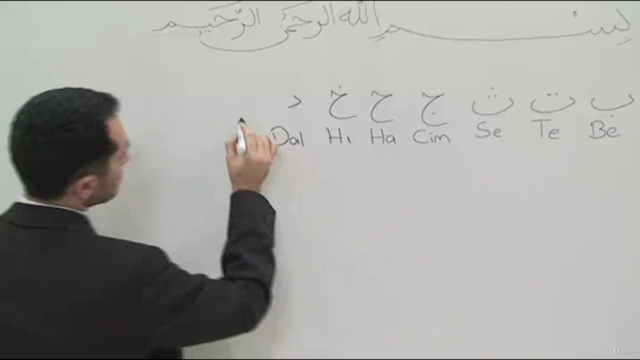 بِسْمِ اللهِ الرَّحْمٰنِ الرَّحِيمِ
ب ت ث ج ح خ د
Dal Hı Ha Cim Se Te Be